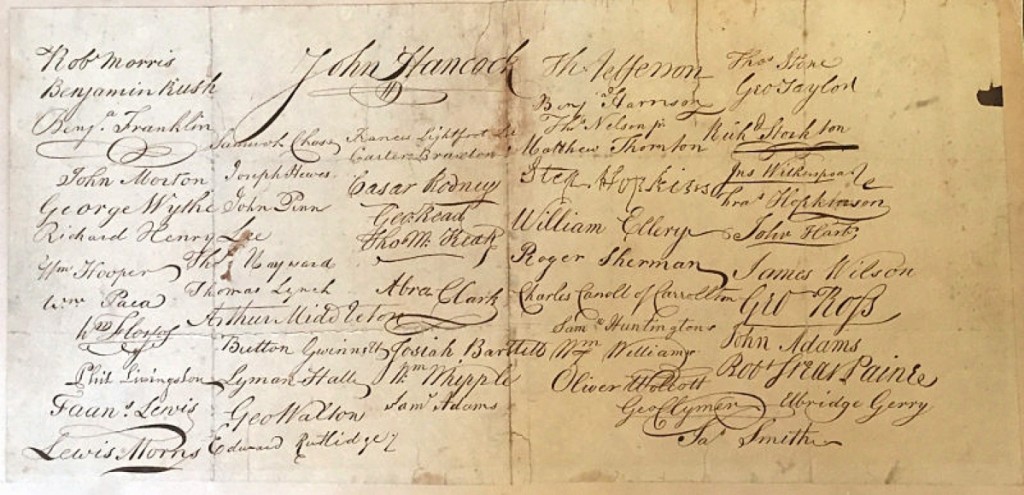 Rob Morris
Benjamin Rush
Benj.a Franklin
John Morton
George Wythe
Richard Henry Lee
Wm Hooper
Wm Paca
Wm Floyd
Phil Livingston
Faun.s Lewis
Lewis Morris
John Hancock
Samuel Chase
Joseph Hewes
John Penn
Tho.s Hayward
Thomas Lynch
Arthur Middleton
Button Gwinnett
Lyman Hall
Geo Walton
Edward Rutlidge
Francis Lightfoot Lee
Carter Braxton
Casar Rodney
Geo Read
Tho M. Kean
Abra Clark
Josiah Bartlett
Wm Whipple
Sam.l Adams
Th Jefferson
Benj.a Harrison
Tho.s Nelson jr
Matthew Thornton
Step Hopkins
William Ellery
Roger Sherman
Charles Carroll of Carrollton
Sam.l Huntington
Wm Williams
Oliver Wolcott
Geo Clymer
Ja.s Smith
Tho.s Stone
Geo Taylor
Rich.d Stockton
Jn.o Witherspoon
Fra.s Hopkinson
John Hart
James Wilson
Geo Ross
John Adams
Rob Treat Paine
Ubridge Gerry